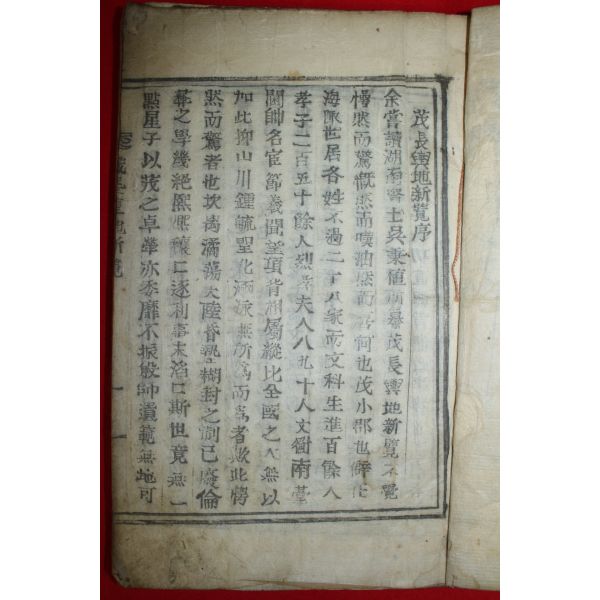 茂長輿地新覽序
余嘗讀湖南高士吳秉値所纂茂長輿地新覽不覺
愕然而驚慨然而嘆油然而言何也茂小郡也僻在
海陬世居各姓不過二十八家而文科生進百餘人
孝子二百五十餘人烈孝夫人八九十人文衡南臺
閫帥名宦節義聞望項背相屬縱比全國之大無以
加此抑山川鍾毓聖化涵泳無所爲而爲者歟此愕
然而驚者也坎离潏蕩大陸昏墊糊封之制已廢倫
彝之學幾絶熙熙穰口逐利喜末滔口斯世竟無一
點星子以茂之卓犖亦委靡不振殷師遺範無地可
茂長輿地新覽 一